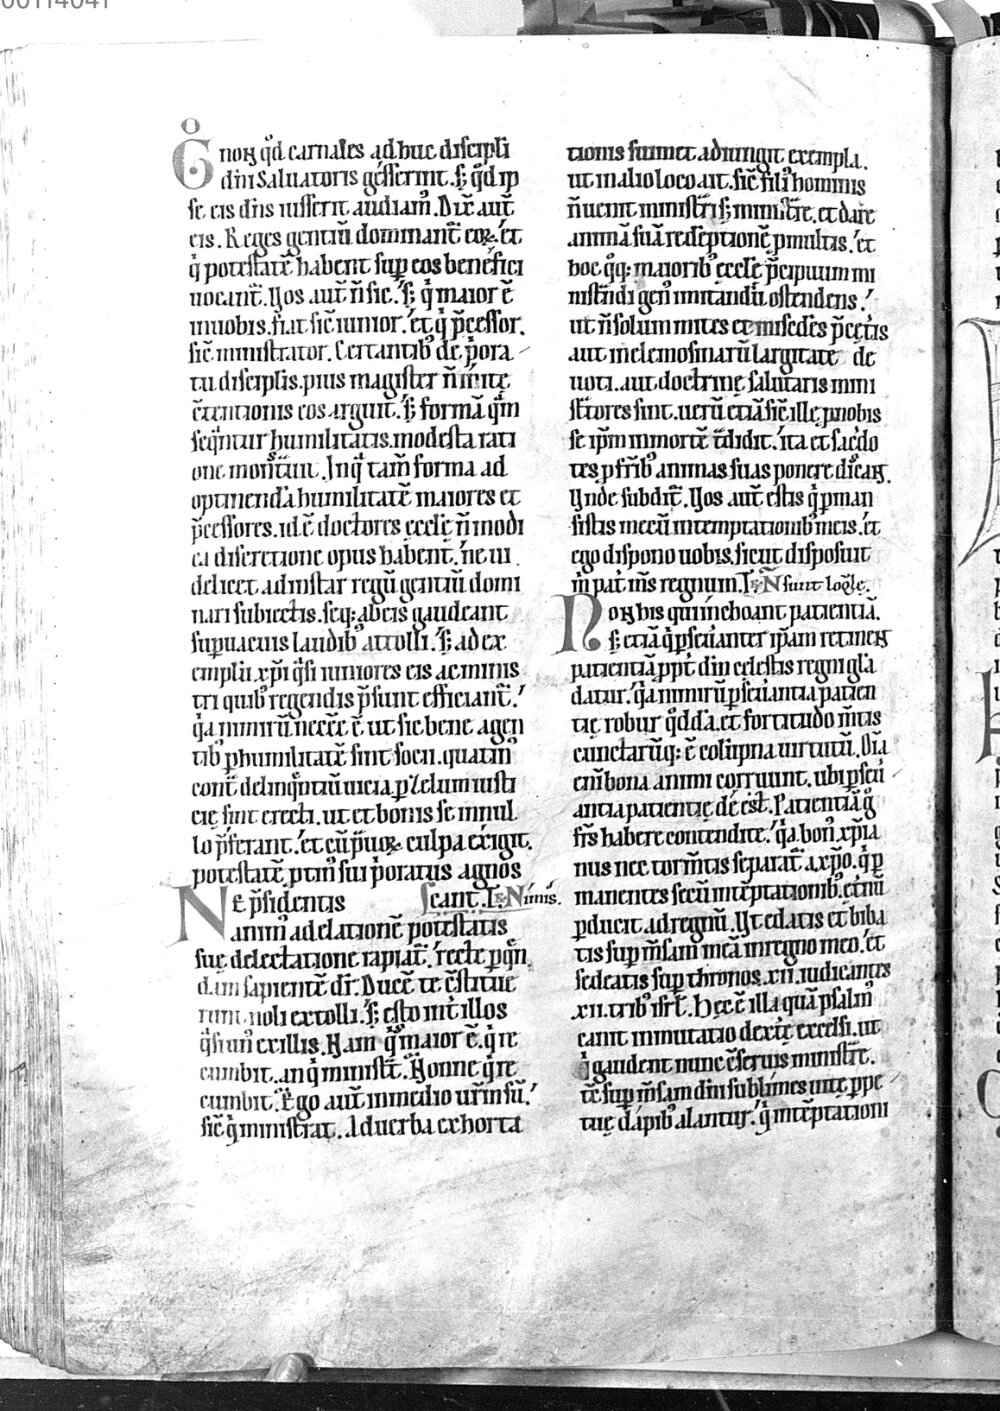 00114041
o
G non qđ carnales adhuc discipli
dñi saluatoris gesserint. s; qđ ip
se eis dñs iusserit audiam̄. Dix̄ aut̄
eis. Reges gentiū dominant̄ eoꝝ. et
q̇ potestatē habent sup eos benefici
uocant̄. Uos aut̄ n̄ sic. s; q̇ maior ē
inuobis. fiat sic̄ iunior. et q̇ p̄cessor.
sic̄ ministrator. Certantib; de p̄ora
tu disciplis. pius magister n̄ inīte
c̄tentionis eos arguit. s; formā q̄m
seqn̄tur humilitatis. modesta rati
one
forma ad
optinendā humilitatē maiores et
p̄cessores. id ē doctores eccl̄e n̄ modi
ca discretione opus habent. ne ui
delicet adinstar regū gentiū domi
nari subiectis. seq; abeis gaudeant
supuacuis laudib; attolli. s; ad ex
emplū xp̄i q̇si iuniores eis ac minis
tri quib; regendis p̄sunt efficiant̄.
q̇a nimirū necēe ē ut sic bene agen
tib; p humilitatē sint socii. quatin̄
cont̄ delinq̄ntiū uicia p zelum iusti
cię sint erecti. ut et bonis se in nul
lo p̄ferant. et cū p̄uoꝝ culpa exigit.
potestatē ptin̄ sui p̄oratus agnos
Ne p̄sidentis scant.
animū ad elationē potestatis
suę delectatione rapiat̄. recte p qn̄
dam sapientē dr̄. Ducē te c̄stitue
runt. noli extolli. s; esto in illos
q̇si un̄ ex illis. Nam q̇s maior ē. q̇ re
cumbit. an q̇ ministt̄. Nonne q̇ re
cumbit. Ego aut̄ in medio ur̄m sū.
sic̄ q̇ ministrat. Aduerba exhorta
tionis suimet adiungit exempla.
ut in alio loco ait. sic̄ filī hominis
n̄ uenit ministrī s; ministr̄e. et dare
animā suā redēptionē p multis. et
hoc q̊q; maiorib; eccl̄ę p̄cipuum mi
nistr̄ndi gen; imitandū ostendens.
ut n̄ solum mites et misedēs p̄cc̄tis
aut in elemosinarū largitate de
uoti. aut doctrinę salutaris mini
stt̄ores sint. uerū etiā sic̄ ille p nobis
se ip̄m in morte t̄didit. ita et sac̄do
tes p fr̄ib; animas suas ponere discant.
Unde subdit̄. Uos aut̄ estis q̇ pman
sistis mecū in temptationib; meis. et
ego dispono uobis. sicut disposuit
m̄ pat̄ m̄s regnum. sunt loq̄le.
Non his qui inchoant patientiā.
s; etiā q̇ pseuianter ip̄am retinent
patientiā. ppt̄ dñi celestis regni glā
datur. q̇a nimirū pseuiantia patien
tię robur q̊ddā. et fortitudo m̄tis
cunctarūq; ē colūpna uirtutū. Om̄a
eni bona animi corruunt. ubi pseui
antia patientię deest. Patientiā g̊
fr̄s habere contendite. q̇a bon; xp̄ia
nus nec torm̄tis separat̄ a xp̄o. q̇ p
manentes secū in tēptationib; et̄nū
pducit ad regnū. Ut edatis et biba
tis sup m̄sam meā in regno meo. et
sedeatis sup thronos. xii. iudicantes
xii. trib; isr̄l. Hec ē illa quā psalm̄
canit inmutatio dext̄e excelsi. ut
q̇ gaudent nunc c̄seruis ministr̄e.
tc̄ sup m̄sam dn̄i sublimes uitę ppe
tuę dapib; alantur. q̇ in tēptationi